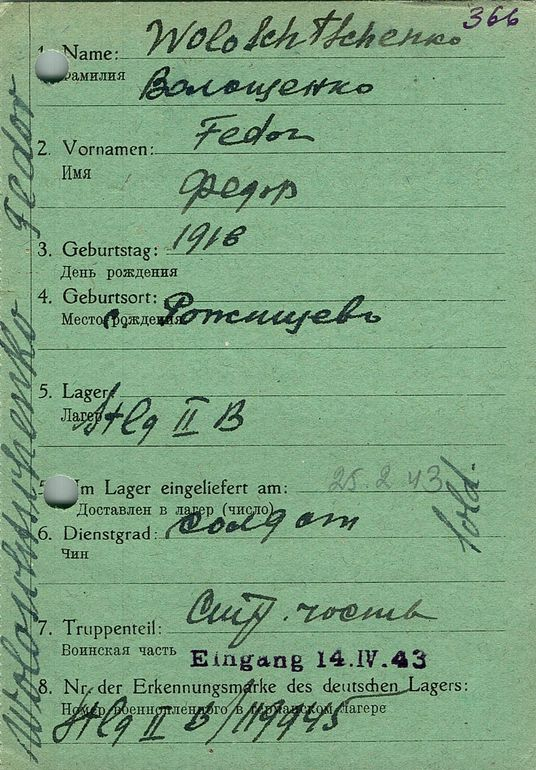 366
1. Name: Woloschtschenko
Фамилия
Волощенко
2. Vornamen: Fedor
Имя
Федор
3. Geburtstag: 1916
День рождения
4. Geburtsort:
Место рождения с. Рожищевъ
5. Lager:
Лагерь Stlg II B
5. Im Lager eingeliefert am: 25.2.43
Доставлен в лагерь (число)
6. Dienstgrad: солдат Sold.
Чин
7. Truppenteil: часть
Воинская часть Eingang 14.IV.43
8. Nr. der Erkennungsmarke des deutschen Lagers:
Номер военнопленного в германском лагере
Stlg II B/119945
Woloschtschenko Fedor